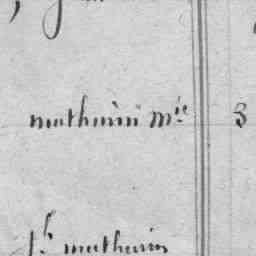 mathurin m^ie 3
j^h mathurin